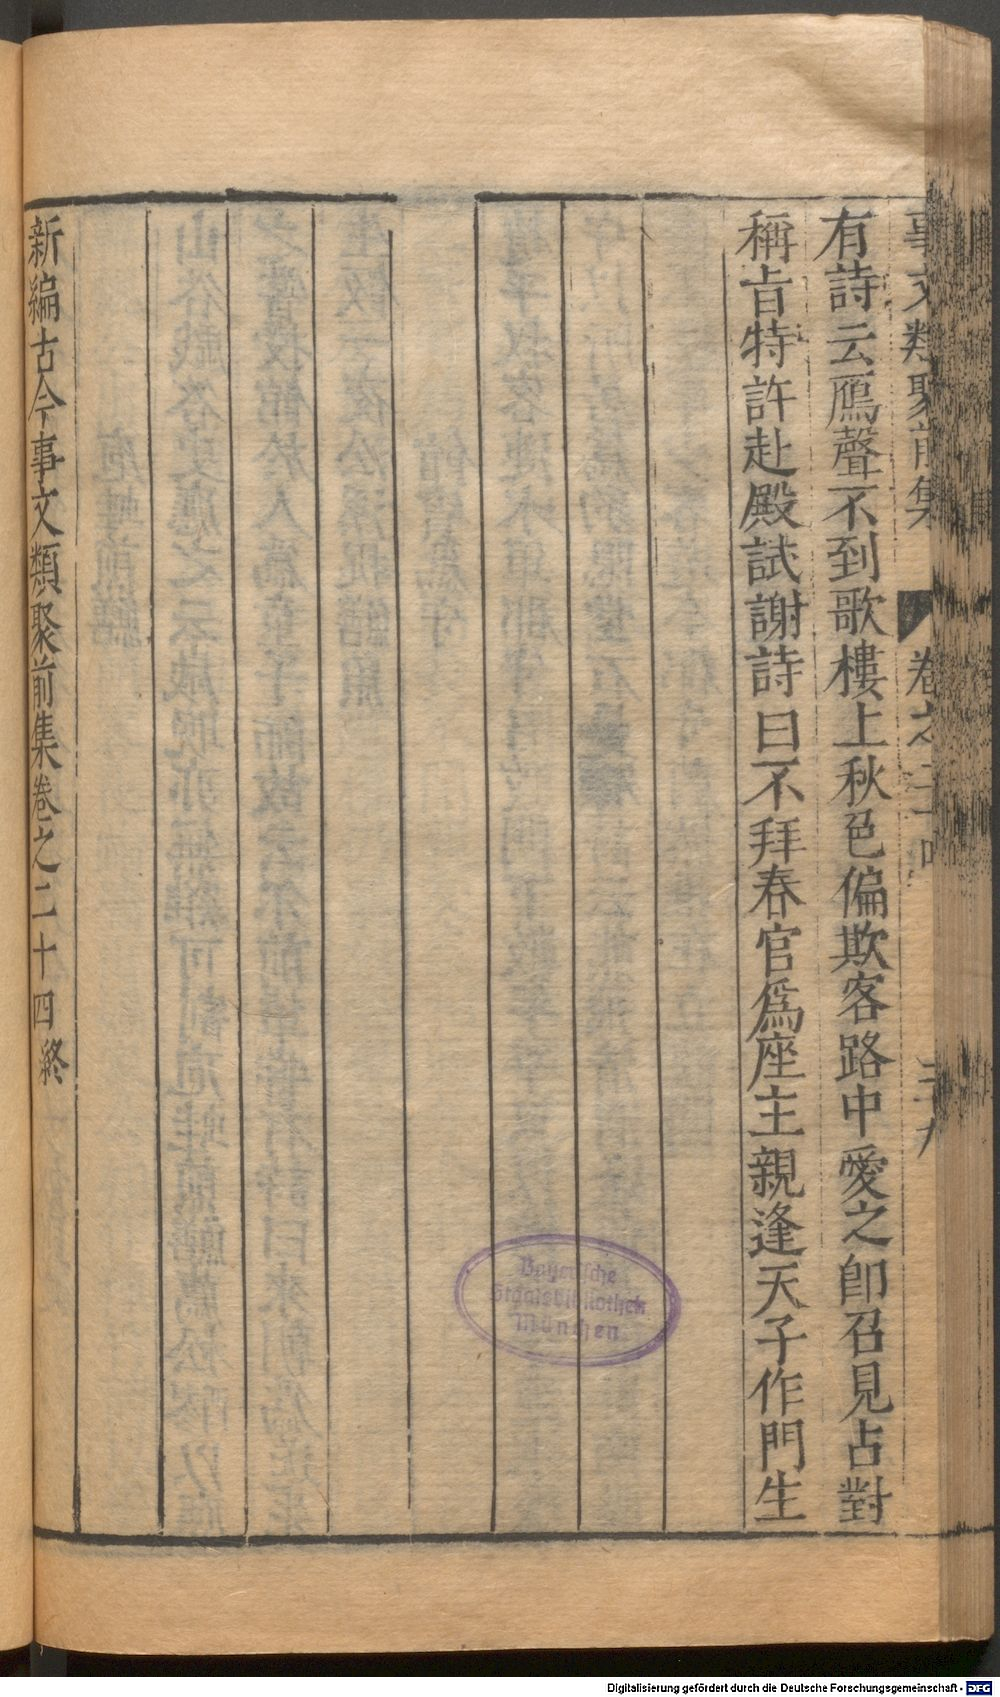 事文類聚前集 卷之二十四 三十九
有詩云鴈聲不到歌樓上秋色偏欺客路中愛之卽召見占對
稱旨特許赴殿試謝詩曰不拜春官爲座主親逢天子作門生
新編古今事文類聚前集卷之二十四終
Bayerische
Staatsbibliothek
München
Digitalisierung gefördert durch die Deutsche Forschungsgemeinschaft - DFG